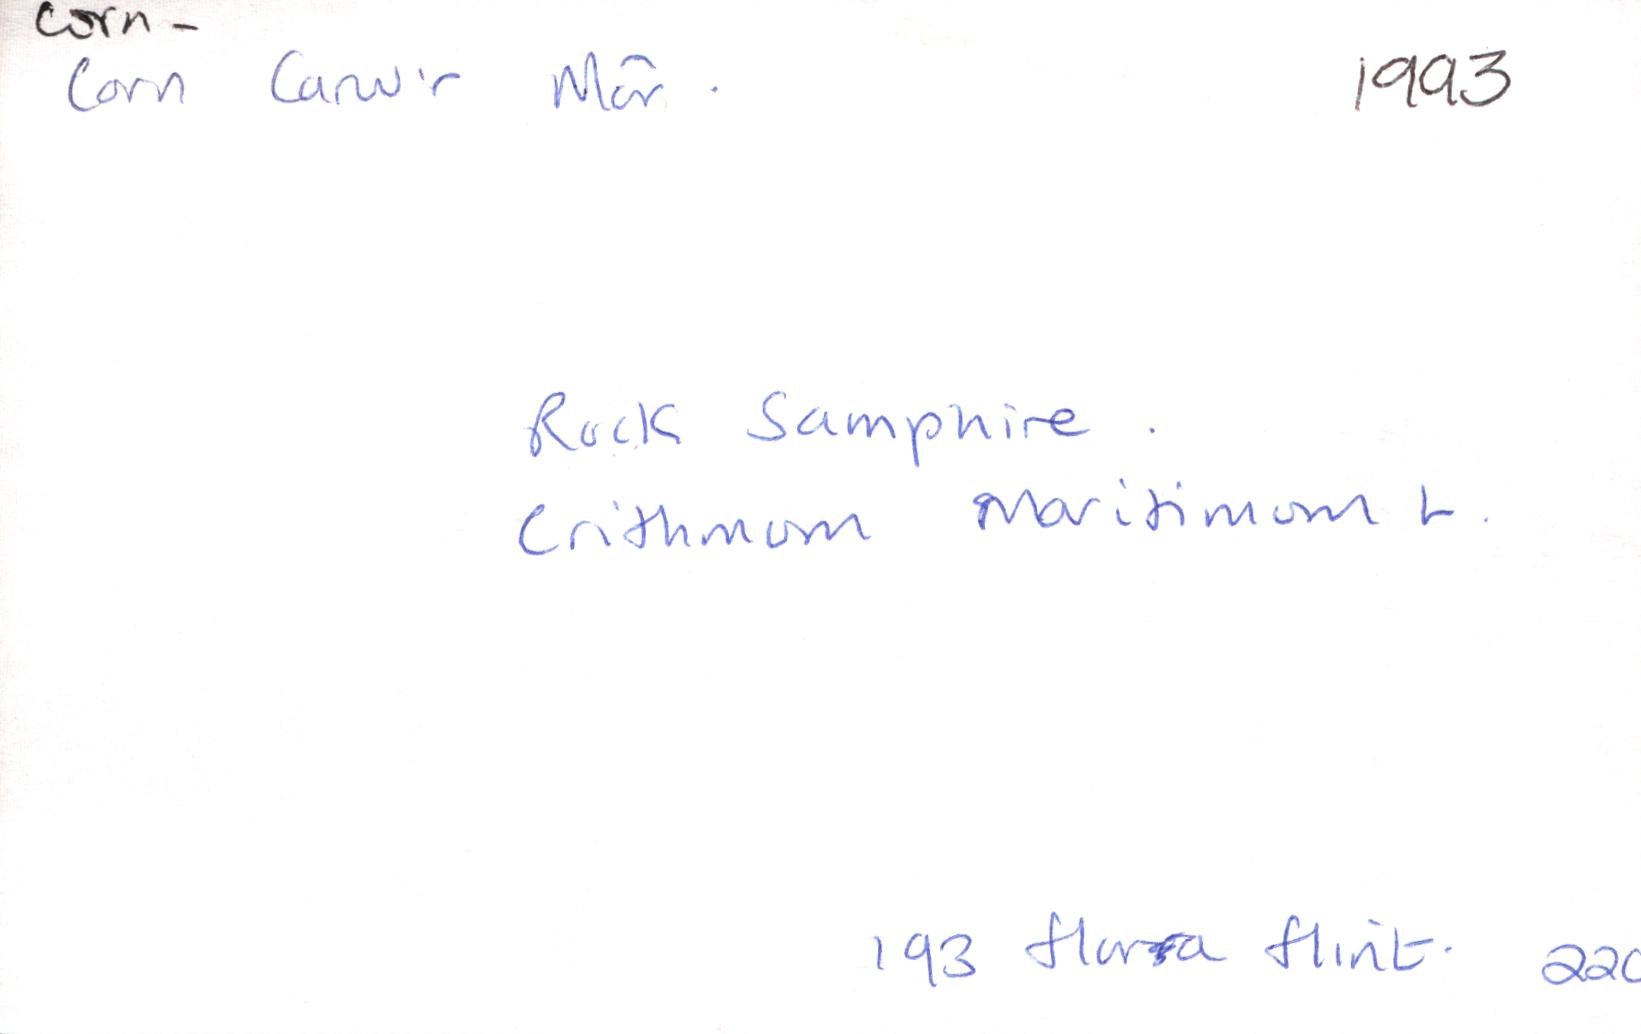 corn-
Corn Carw'r Môr. 1993
Rock Samphire.
Crithmum Maritimum L.
193 flora flint. 220